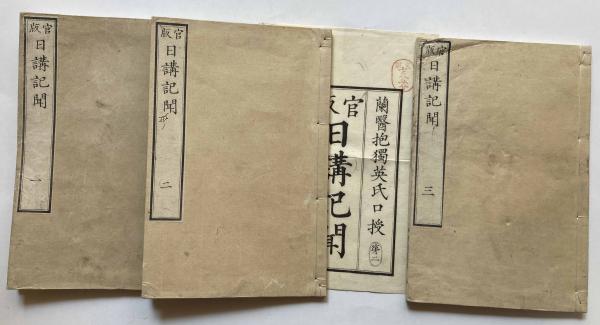 官版
日講記聞
一
官版
日講記聞
二
蘭醫抱獨英氏口授
官版
日講記聞
官版
日講記聞
三